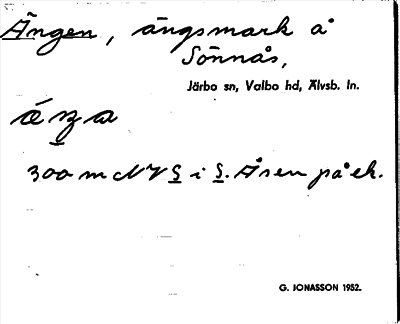 Ängen, ängsmark å
Sönnås,
Järbo sn, Valbo hd, Älvsb. ln.
300 m NV S i S. Åsen på ek.
G. JONASSON 1952.